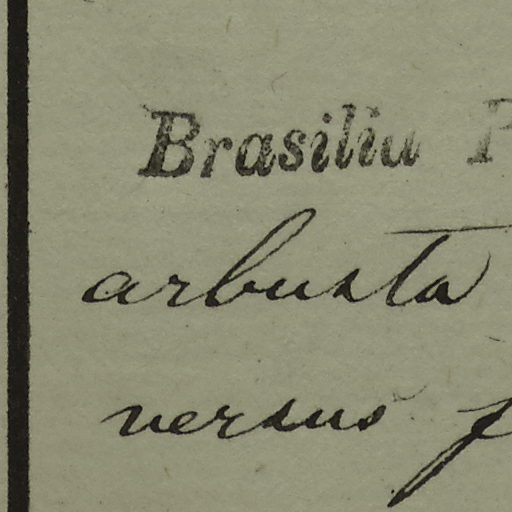 Brasilia P
arbusta
versus f